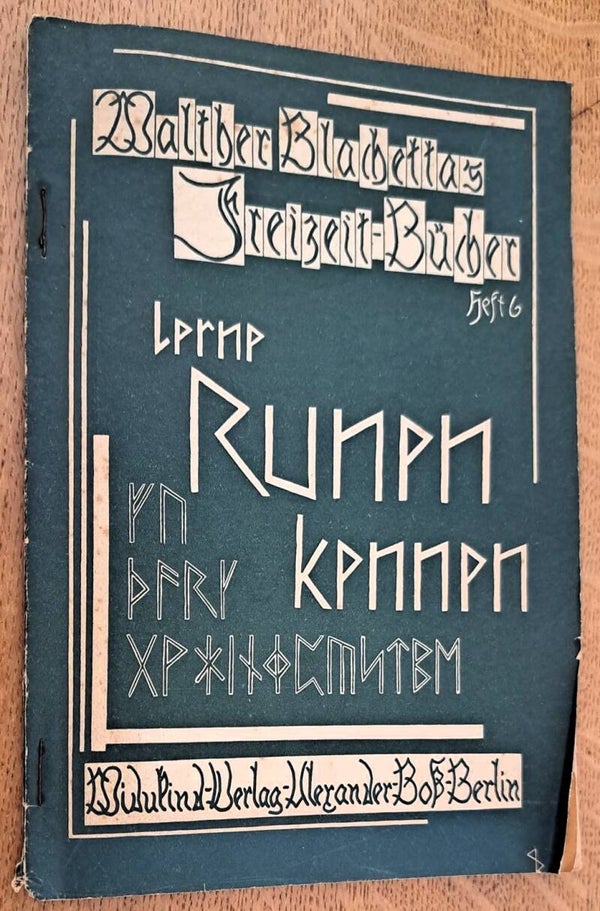 Walther Blachettas
Freizeit-Bücher
Heft 6
Lerne
Runen
kennen
ᚠᚢ
ᚦᚨᚱᚴ
ᚷᚹᚼᛁᚾ
Widukind-Verlag-Alexander-Boß-Berlin